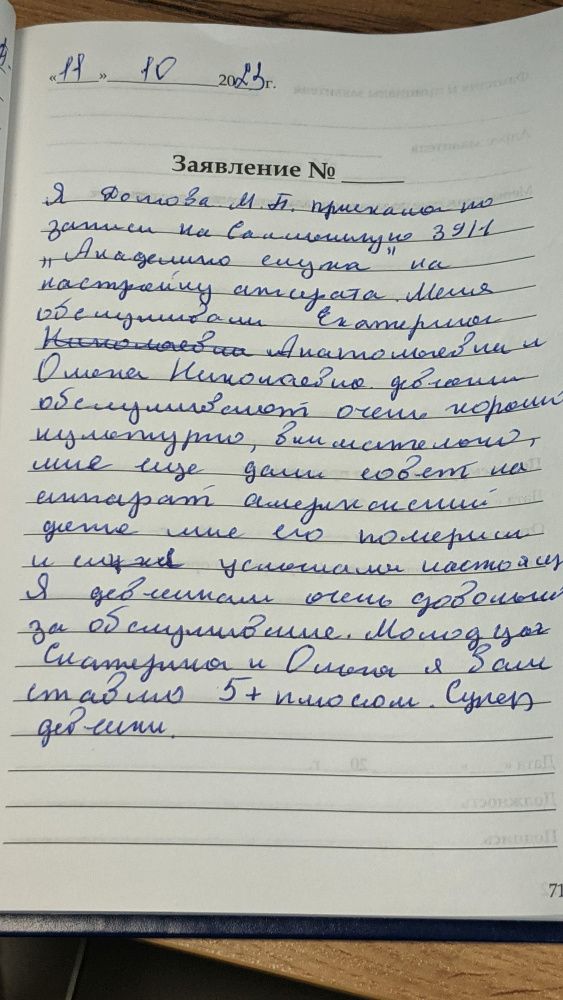 «11» 10 2023г.
Заявление №
Я М.П. приехала по
записи на 39/1
„Академию слуха" на
настройку аппарата. Меня
обслуживали Екатерина
Николаевна Анатолаевна и
Олега Николаевна девченки
обслуживают очень хорошо
культурно, внимательно,
мне еще дали совет на
аппарат американский
даже мне его померили
и услышала настоящ
Я девченкам очень довольна
за обслуживание. Молодцы
Екатерина и Олега я Вам
ставлю 5+ плюсом. Супер
девченки.
71